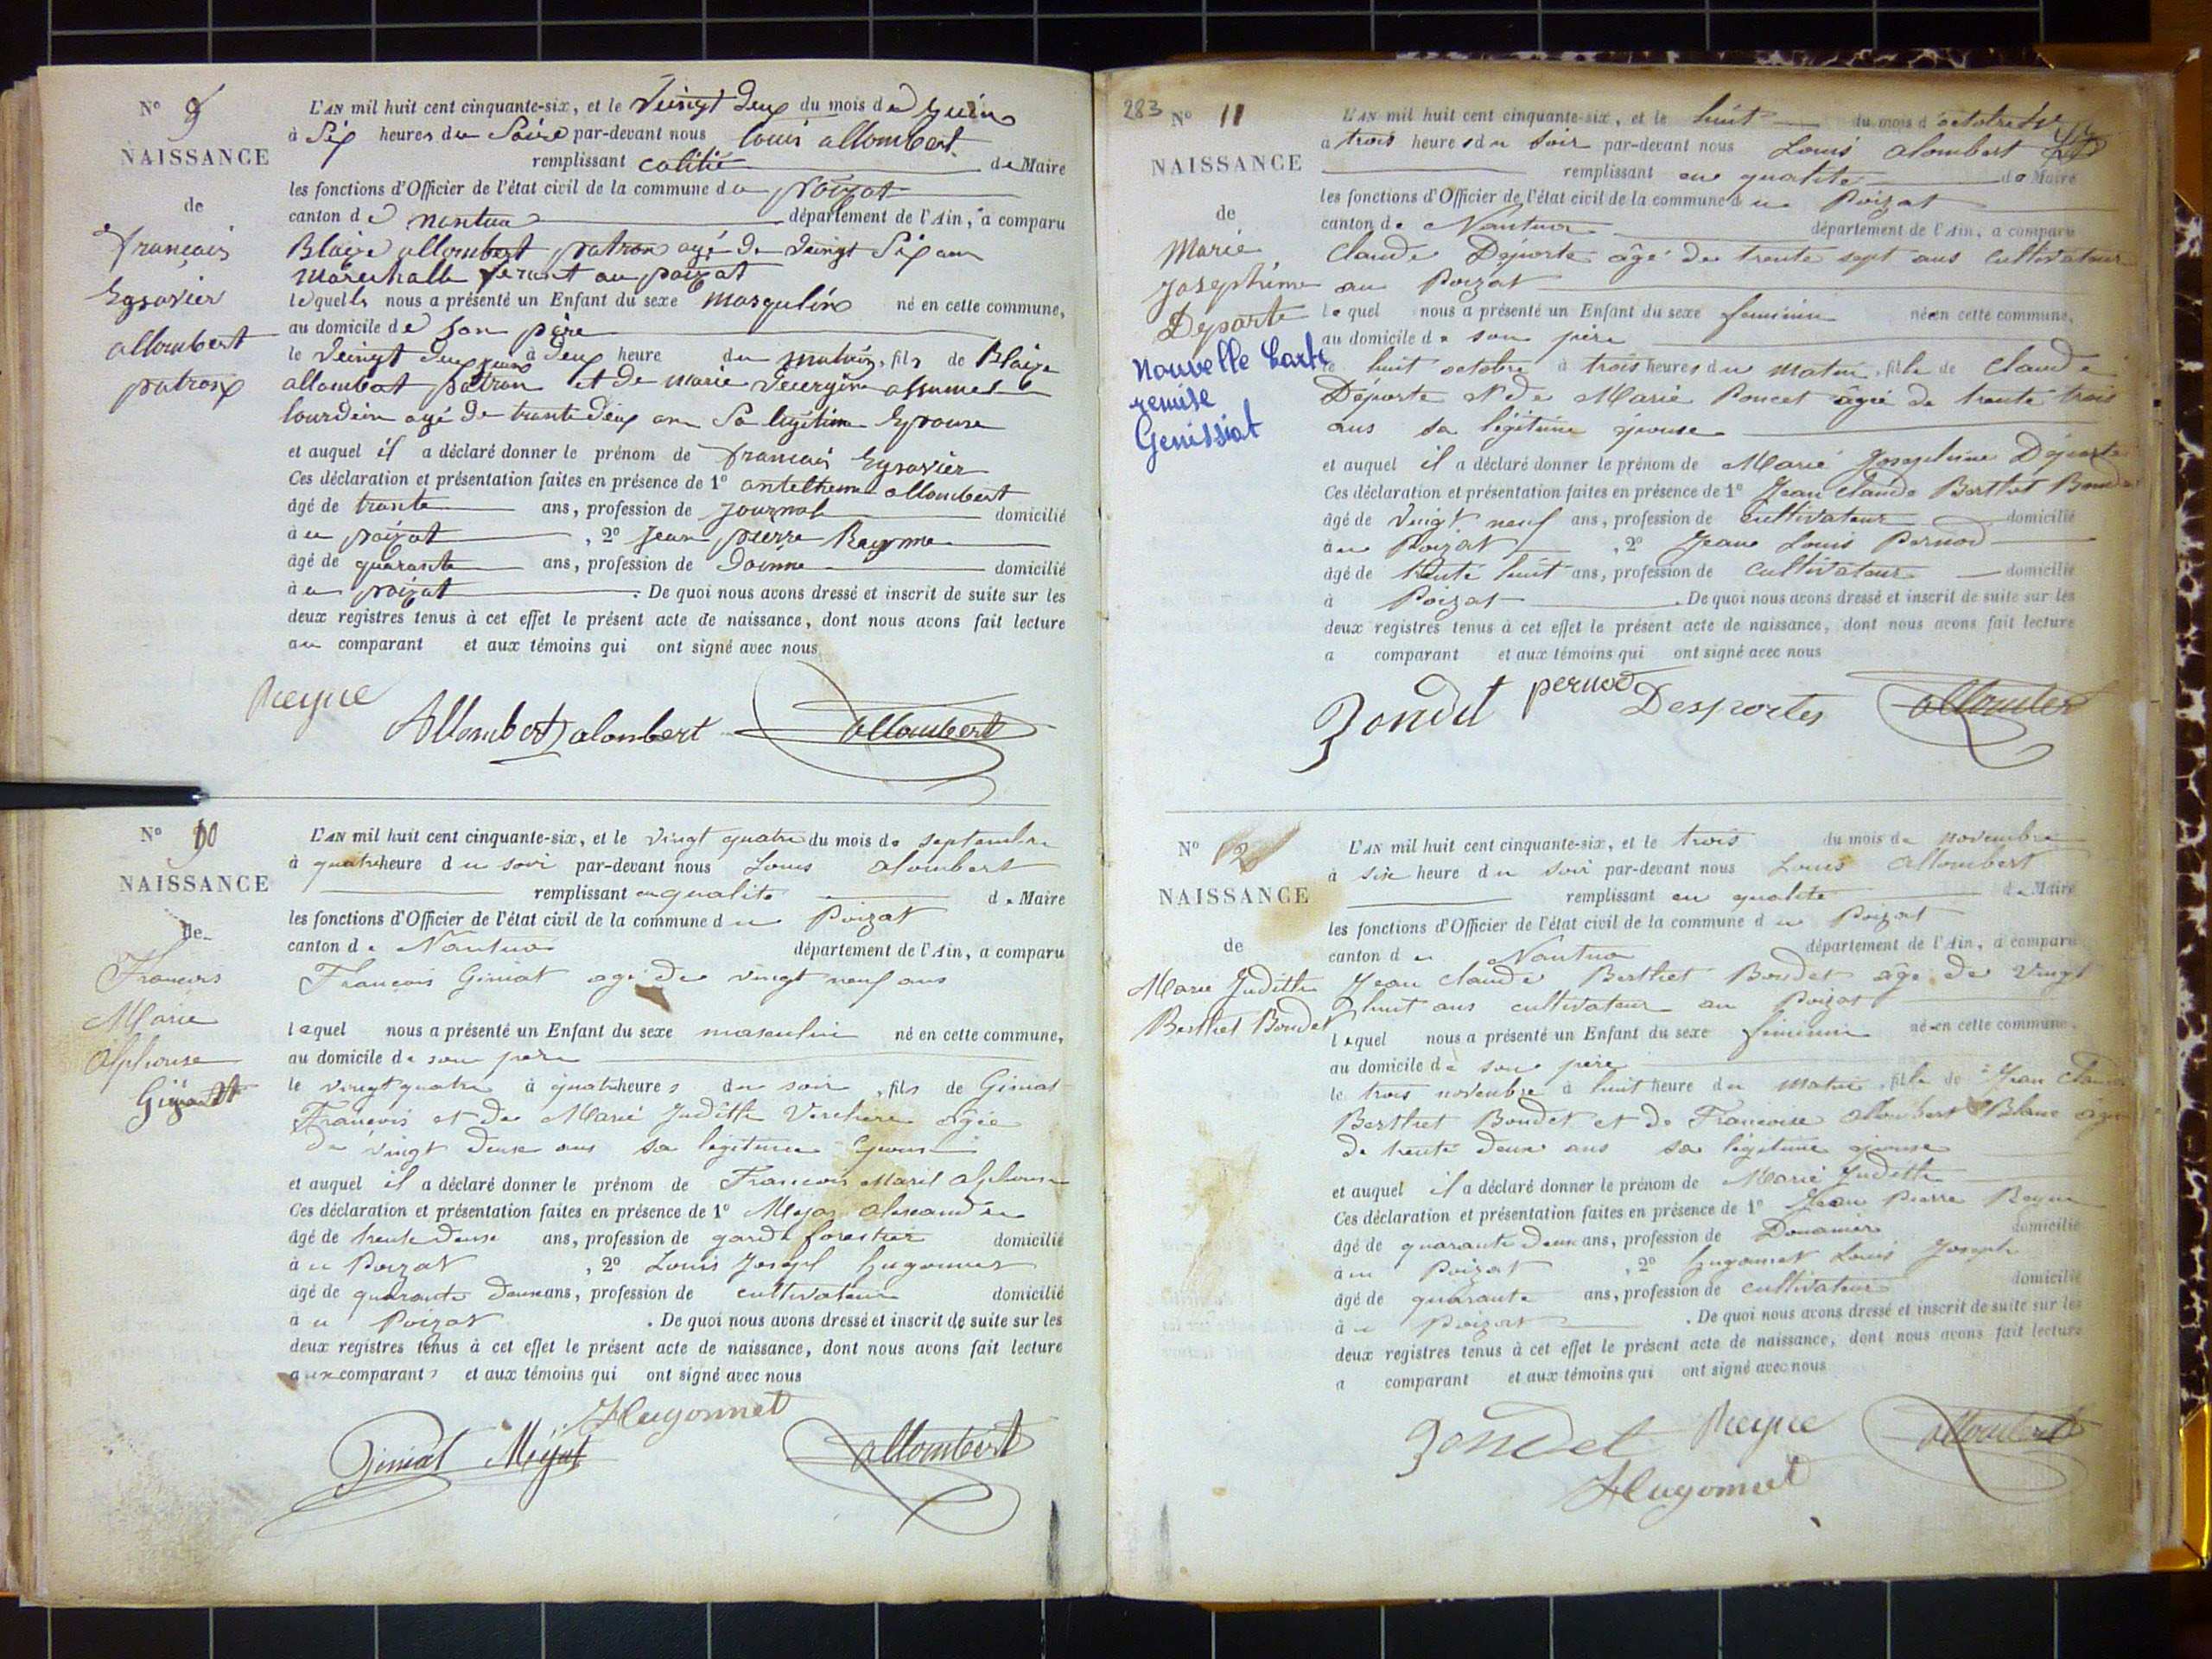 N° 9
NAISSANCE
de
francois
Egsavier
allombert
patron
L'AN mil huit cent cinquante-six, et le Veingt deux du mois de Juin
à Six heures du Soire par-devant nous louis allombert
remplissant calitié de Maire
les fonctions d'Officier de l'état civil de la commune du poizat
canton de nantua département de l'Ain, a comparu
Blaize allombert patron agé de Veingt Six an
marechalle ferant au poizat
lequelle nous a présenté un Enfant du sexe masqulin né en cette commune,
au domicile de son père
le Veingt deux juin à deux heure du matin, fils de Blaize
allombat patron et de marie
lourdein agé de trante deux an Sa legitime Epouse
et auquel il a déclaré donner le prénom de francois Egsavier
Ces déclaration et présentation faites en présence de 1° antelheme allombert
âgé de trante ans, profession de journal domicilié
au poizat, 2° Jean pierre Reyme
âgé de quarante ans, profession de doinne domicilié
au poizat. De quoi nous avons dressé et inscrit de suite sur les
deux registres tenus à cet effet le présent acte de naissance, dont nous avons fait lecture
au comparant et aux témoins qui ont signé avec nous
Reyne
Allombert alombert allombert
N° 10
NAISSANCE
de
Francois
Marie
Alphonse
Giniat
L'AN mil huit cent cinquante-six, et le vingt quatre du mois de septembre
à quatre heure du soir par-devant nous Louis alombert
remplissant en qualite de Maire
les fonctions d'Officier de l'état civil de la commune du Poizat
canton de Nantua département de l'Ain, a comparu
Francois Giniat agé de vingt neuf ans
lequel nous a présenté un Enfant du sexe masculin né en cette commune,
au domicile de son pere
le vingt quatre à quatre heures du soir, fils de Giniat
Francois et de Marie Judith Verchere agée
de vingt deux ans sa legitime Epouse
et auquel il a déclaré donner le prénom de Francois Marie Alphonse
Ces déclaration et présentation faites en présence de 1° Mejat alexandre
âgé de trente deux ans, profession de garde forestier domicilié
au Poizat, 2° Louis Joseph hugonnet
âgé de quarante deux ans, profession de cultivateur domicilié
au Poizat. De quoi nous avons dressé et inscrit de suite sur les
deux registres tenus à cet effet le présent acte de naissance, dont nous avons fait lecture
aux comparants et aux témoins qui ont signé avec nous
Hugonnet
Giniat Mejat allombert
283
N° 11
NAISSANCE
de
Marie
Josephine
Deporte
Nouvelle Carte
remise
Genissiat
L'AN mil huit cent cinquante-six, et le huit du mois d'octobre
a trois heures du soir par-devant nous Louis alombert
remplissant en qualite de Maire
les fonctions d'Officier de l'état civil de la commune du Poizat
canton de Nantua département de l'Ain, a comparu
Claude Déporte âgé de trente sept ans cultivateur
au Poizat
lequel nous a présenté un Enfant du sexe feminin né en cette commune,
au domicile de son père
le huit octobre à trois heures du matin, fille de Claude
Déporte & de Marie Poncet âgée de trente trois
ans sa légitime épouse
et auquel il a déclaré donner le prénom de Marie Josephine Déporte
Ces déclaration et présentation faites en présence de 1° Jean Claude Berthet Bondet
âgé de vingt neuf ans, profession de cultivateur domicilié
au Poizat, 2° Jean Louis Pernod
âgé de trente huit ans, profession de cultivateur domicilié
à Poizat. De quoi nous avons dressé et inscrit de suite sur les
deux registres tenus à cet effet le présent acte de naissance, dont nous avons fait lecture
a comparant et aux témoins qui ont signé avec nous
Bondet pernod Desportes allombert
N° 12
NAISSANCE
de
Marie Judith
Berthet Bondet
L'AN mil huit cent cinquante-six, et le trois du mois de novembre
à six heure du soir par-devant nous Louis allombert
remplissant en qualité de Maire
les fonctions d'Officier de l'état civil de la commune du Poizat
canton de Nantua département de l'Ain, a comparu
Jean Claude Berthet Bondet âgé de vingt
huit ans cultivateur au Poizat
lequel nous a présenté un Enfant du sexe feminin né en cette commune,
au domicile de son père
le trois novembre à huit heure du matin, fille de Jean Claude
Berthet Bondet et de Francoise Allombert Blanc âgée
de trente deux ans sa légitime épouse
et auquel il a déclaré donner le prénom de Marie Judith
Ces déclaration et présentation faites en présence de 1° Jean Pierre Reyne
âgé de quarante deux ans, profession de Douanier domicilié
au Poizat, 2° hugonnet Louis Joseph
âgé de quarante ans, profession de cultivateur domicilié
au Poizat. De quoi nous avons dressé et inscrit de suite sur les
deux registres tenus à cet effet le présent acte de naissance, dont nous avons fait lecture
a comparant et aux témoins qui ont signé avec nous
Bondet Reyne allombert
Hugonnet